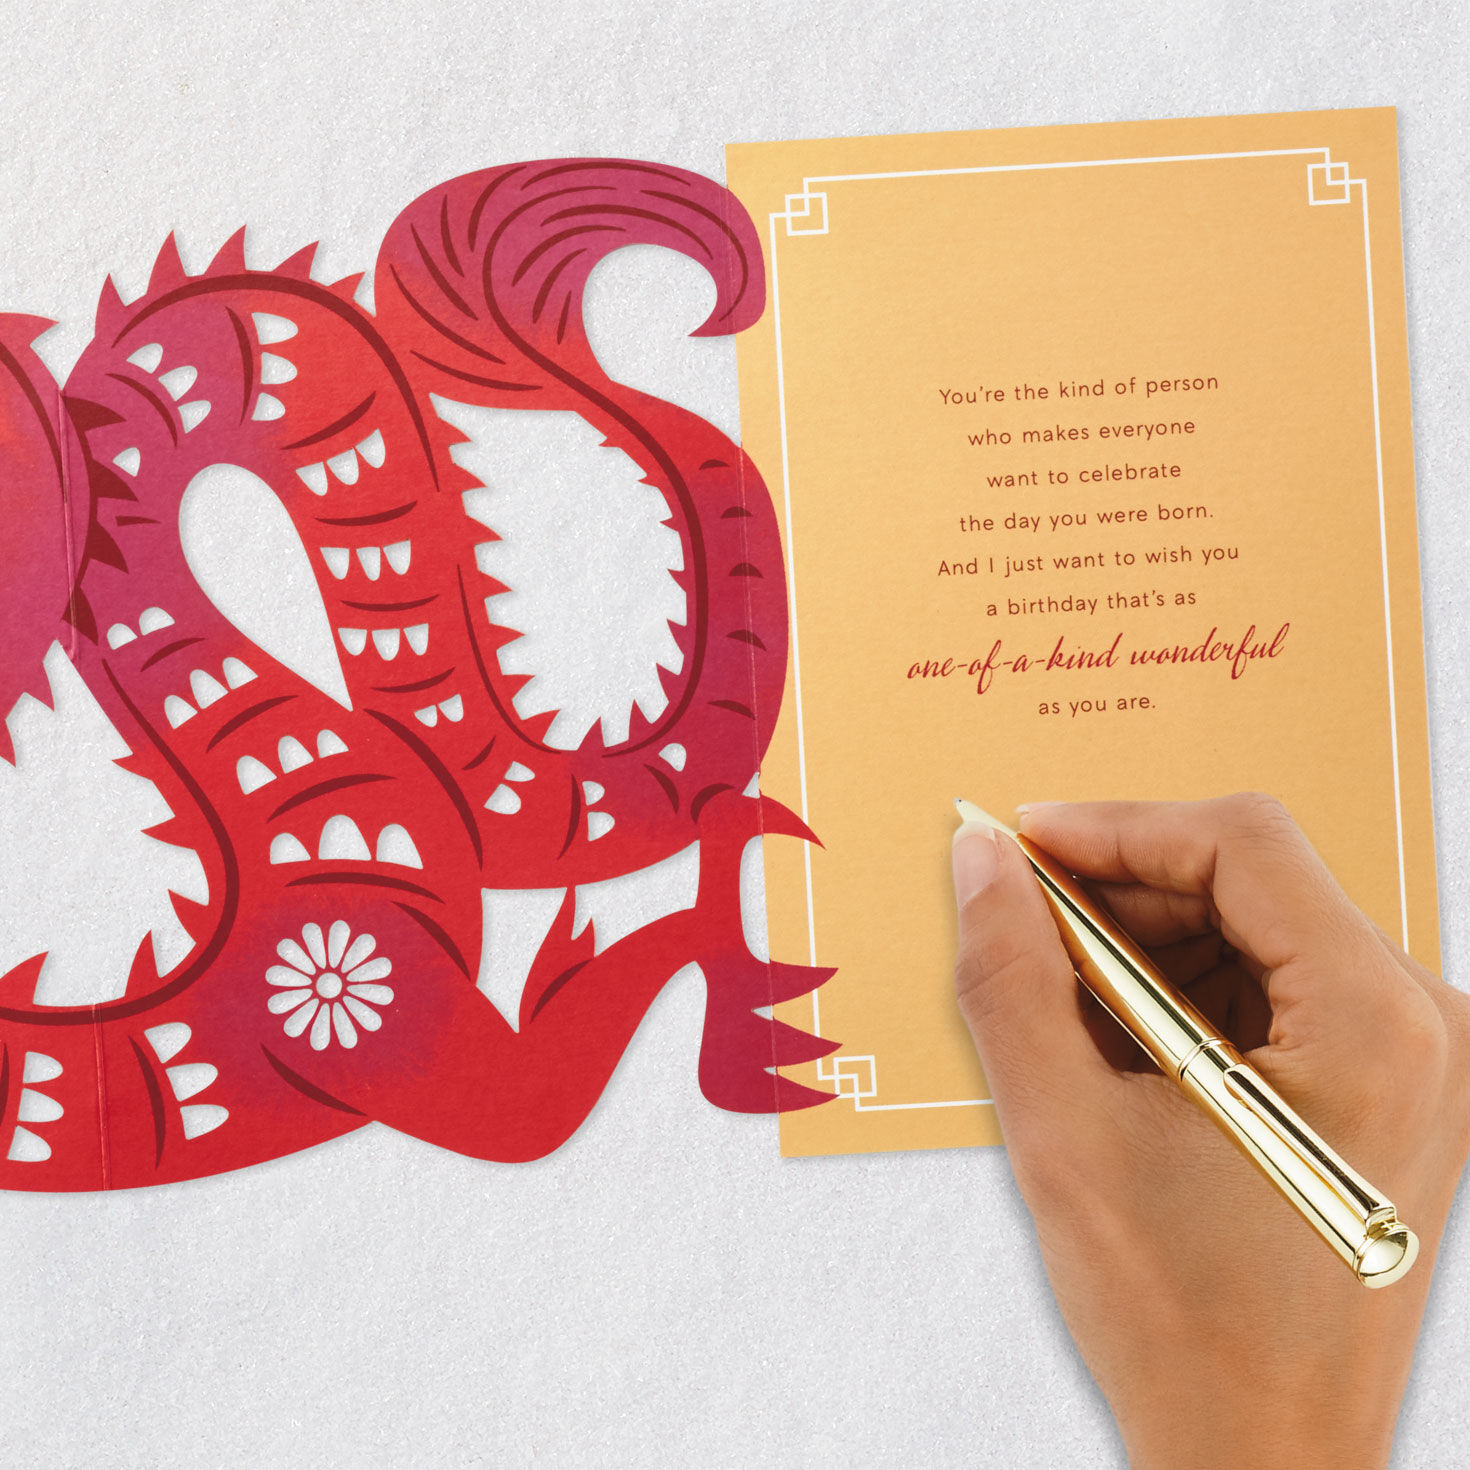 You're the kind of person
who makes everyone
want to celebrate
the day you were born.
And I just want to wish you
a birthday that's as
one-of-a-kind wonderful
as you are.